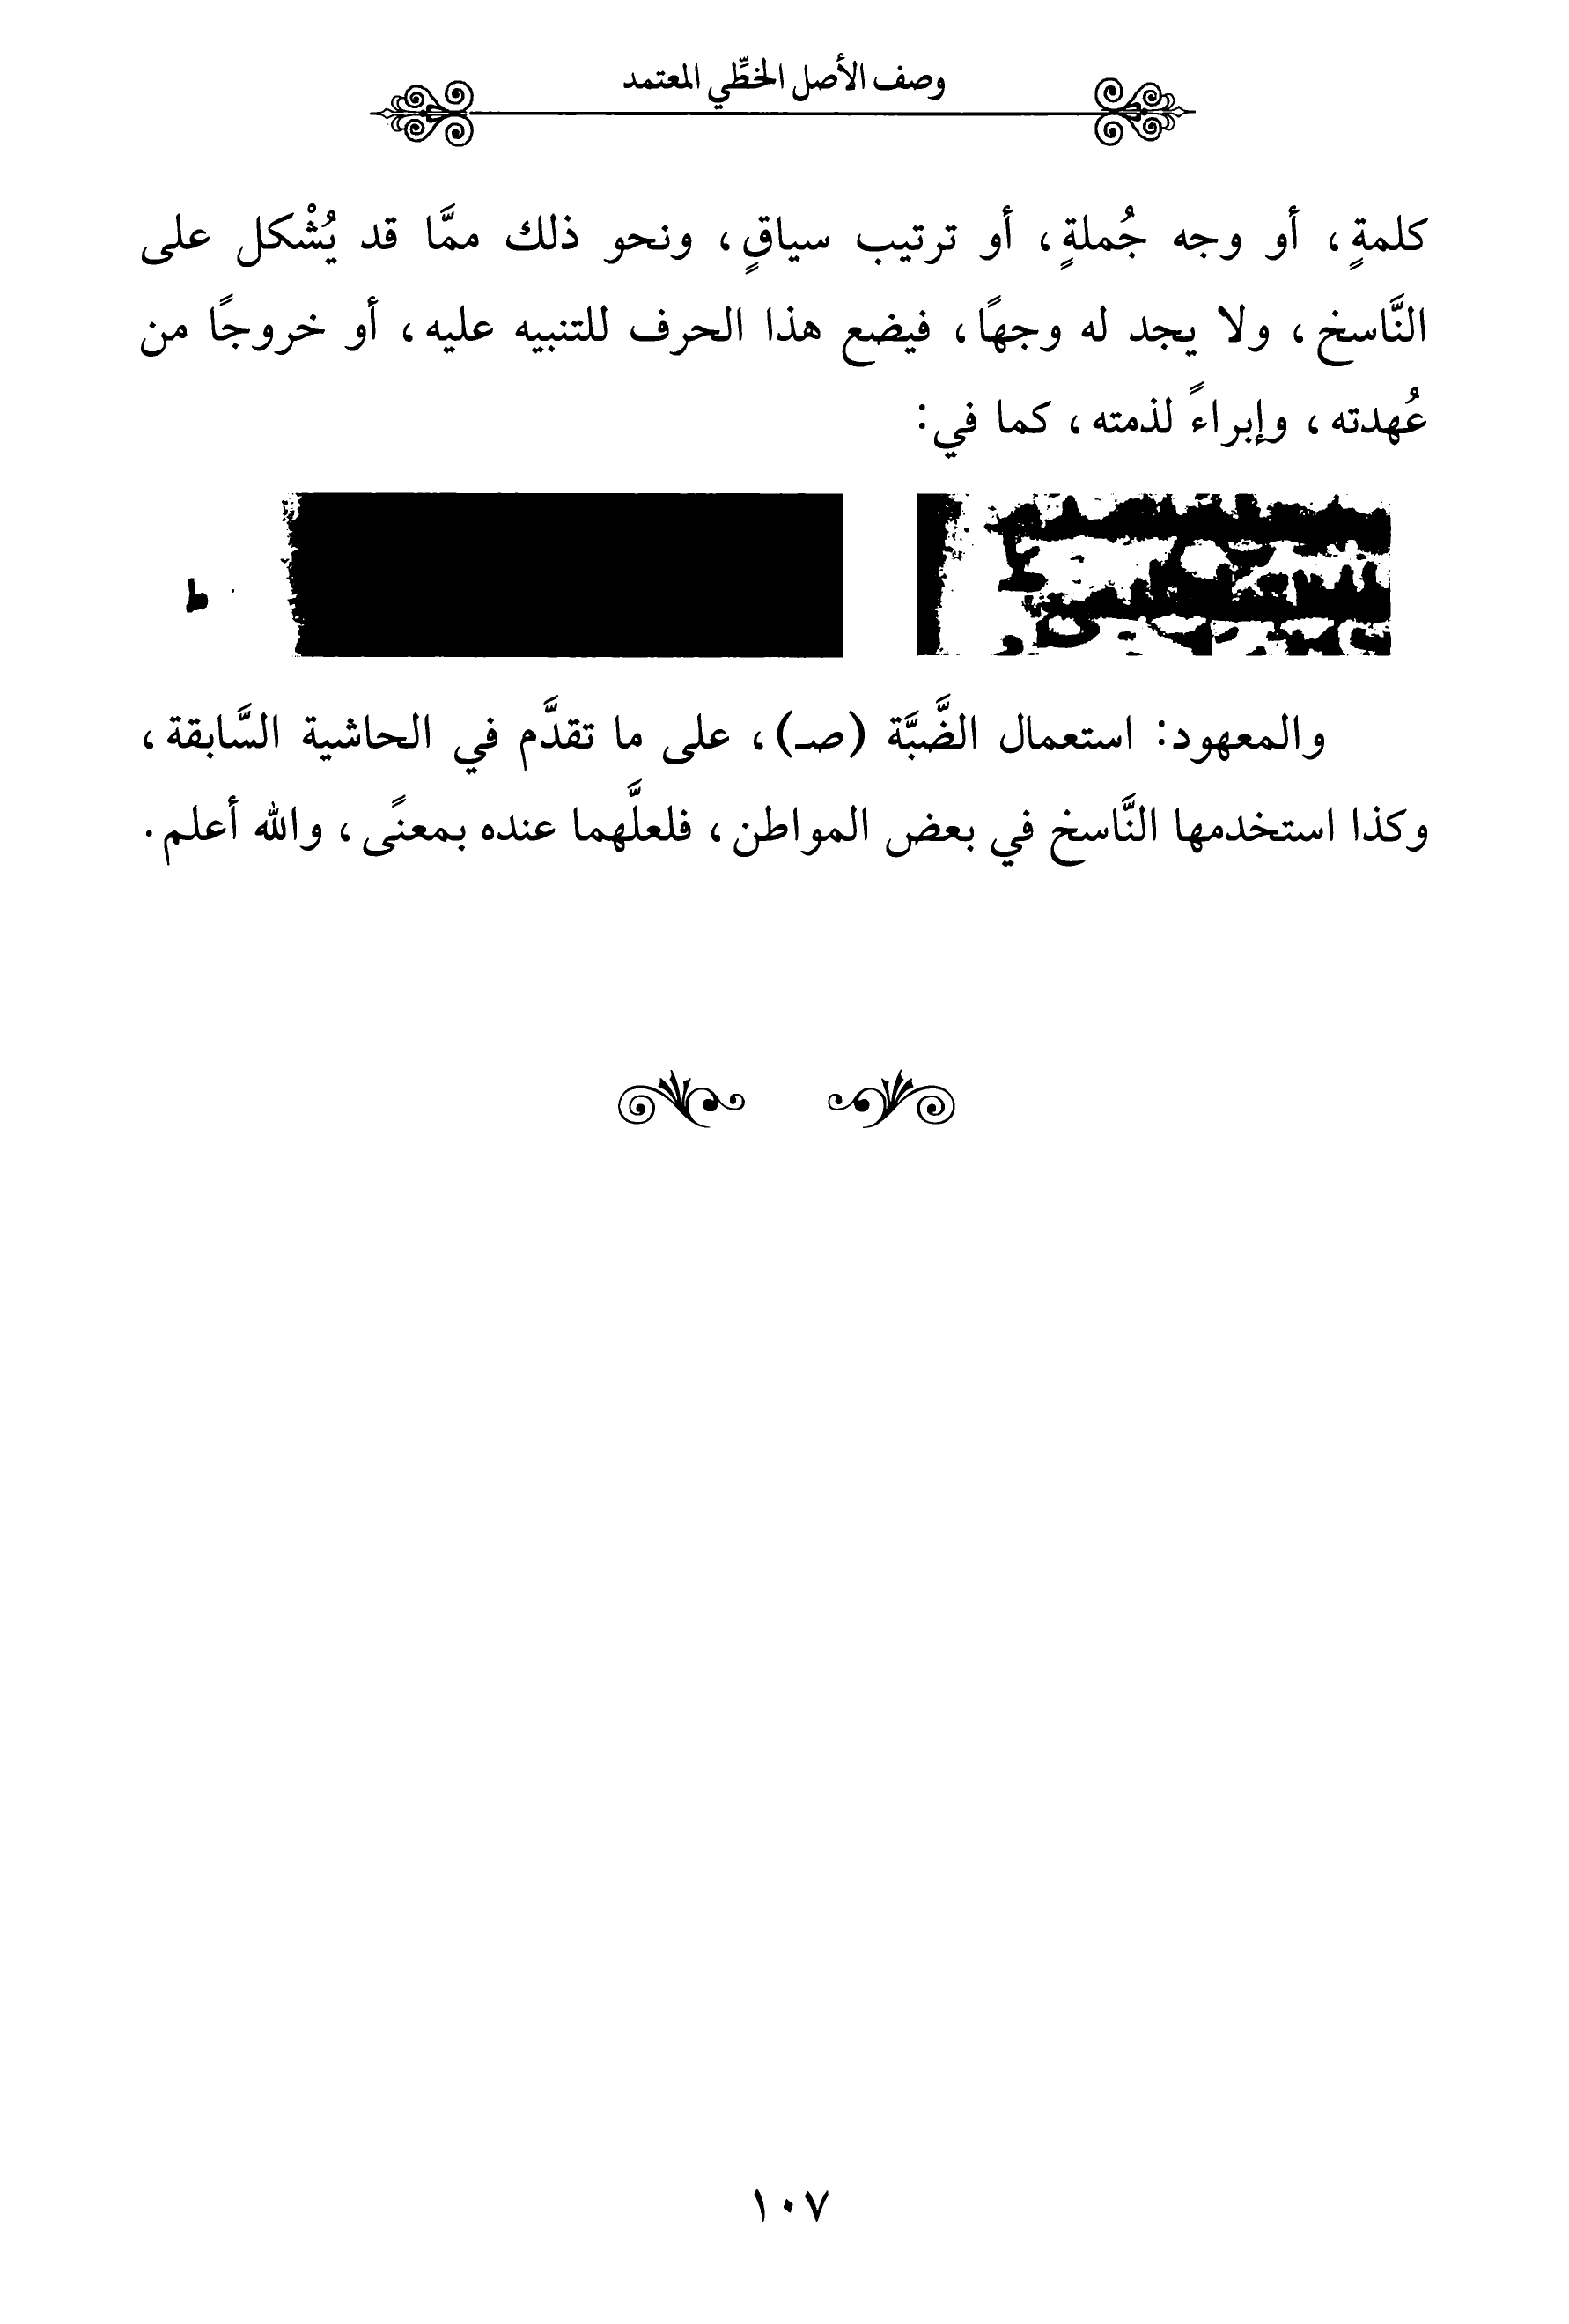 وصف الأصل الخطِّي المعتمد
كلمةٍ، أو وجه جُملةٍ، أو ترتيب سياقٍ، ونحو ذلك ممَّا قد يُشْكل على
النَّاسخ، ولا يجد له وجهًا، فيضع هذا الحرف للتنبيه عليه، أو خروجًا من
عُهدته، وإبراءً لذمته، كما في:
ط
والمعهود: استعمال الضَّبَّة (صـ)، على ما تقدَّم في الحاشية السَّابقة،
وكذا استخدمها النَّاسخ في بعض المواطن، فلعلَّهما عنده بمعنًى، والله أعلم.
١٠٧